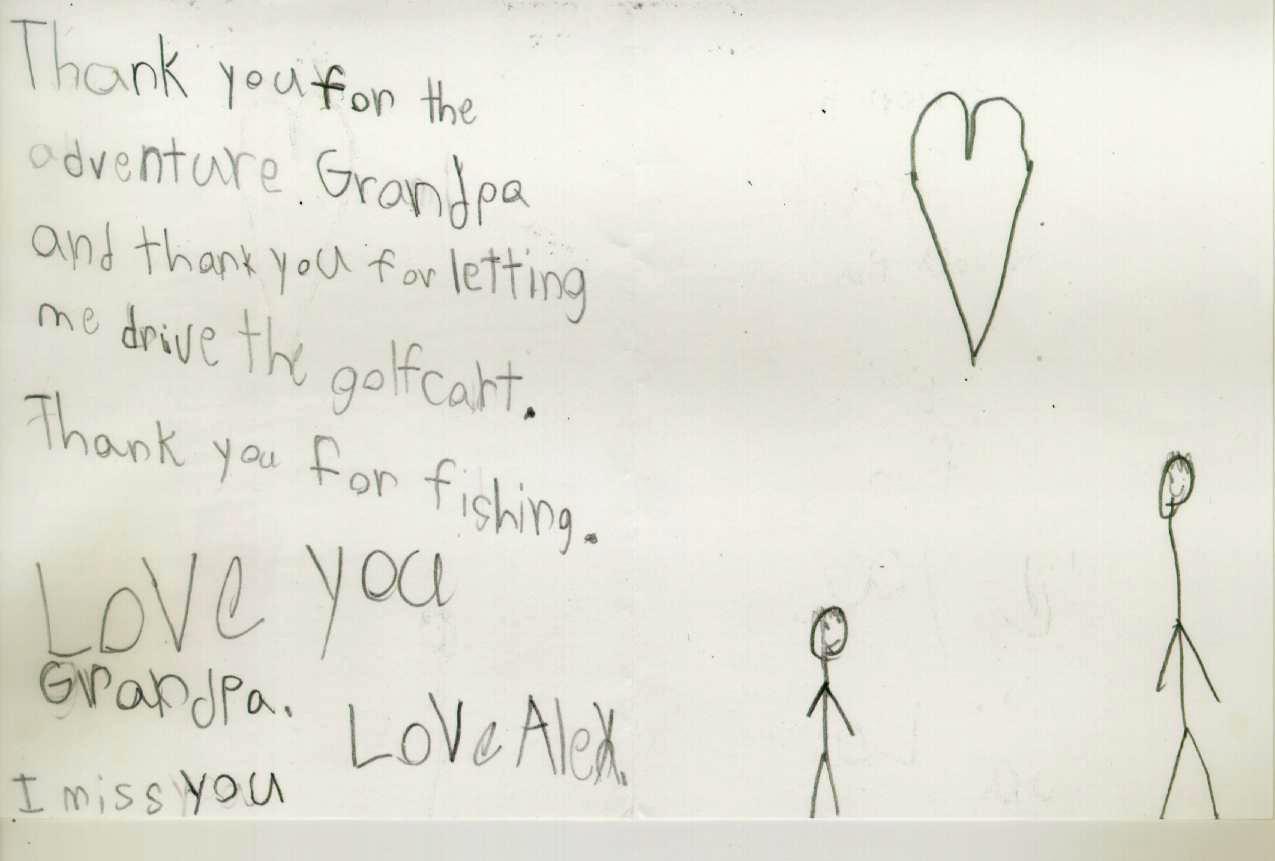 Thank you for the
adventure Grandpa
and thank you for letting
me drive the golfcart.
Thank you for fishing.
Love you
Grandpa.
Love Alex.
I miss you